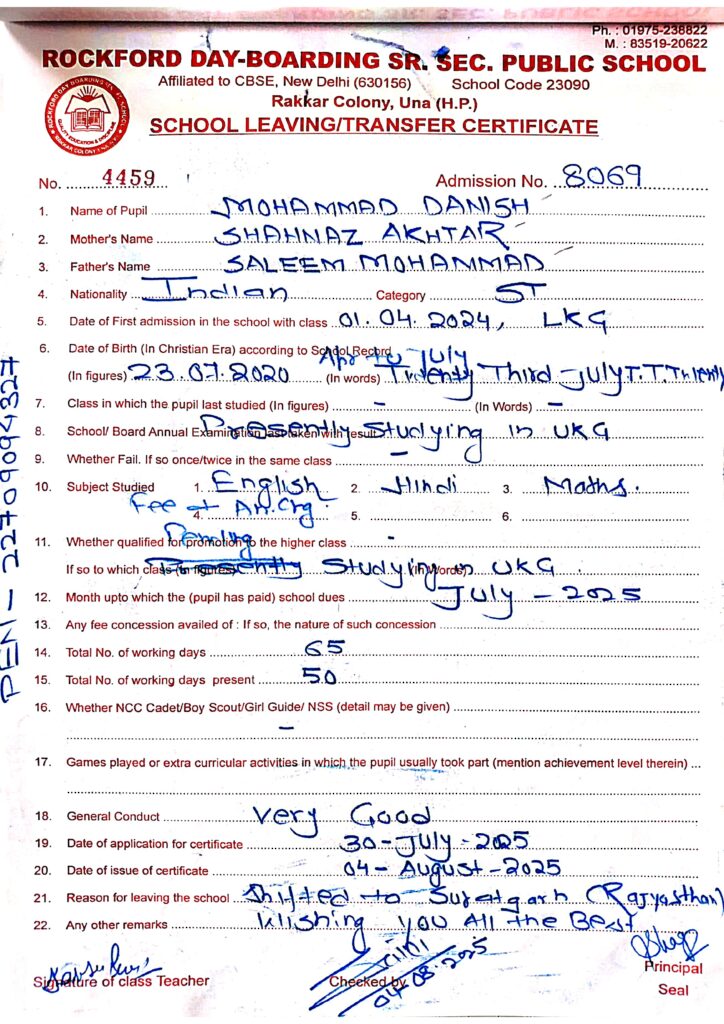 Ph. : 01975-238822
M. : 83519-20622
ROCKFORD DAY-BOARDING SR. SEC. PUBLIC SCHOOL
Affiliated to CBSE, New Delhi (630156) School Code 23090
Rakkar Colony, Una (H.P.)
SCHOOL LEAVING/TRANSFER CERTIFICATE
No. 4459 Admission No. 8069
1. Name of Pupil MOHAMMAD DANISH
2. Mother's Name SHAHNAZ AKHTAR
3. Father's Name SALEEM MOHAMMAD
4. Nationality Indian Category ST
5. Date of First admission in the school with class 01.04.2024, LKG
6. Date of Birth (In Christian Era) according to School Record
Apr to July
(In figures) 23.07.2020 (In words) Twenty Third July T.T.Twenty
7. Class in which the pupil last studied (In figures) - (In Words) -
8. School/ Board Annual Examination last taken with result Presently Studying in UKG
9. Whether Fail. If so once/twice in the same class -
10. Subject Studied 1. English 2. Hindi 3. Maths.
Fee + An.Crg. 4. 5. 6.
Pending
11. Whether qualified for promotion to the higher class -
If so to which class (In figures) Presently Studying (In Words) in UKG.
12. Month upto which the (pupil has paid) school dues July - 2025
13. Any fee concession availed of : If so, the nature of such concession
14. Total No. of working days 65
15. Total No. of working days present 50
16. Whether NCC Cadet/Boy Scout/Girl Guide/ NSS (detail may be given)
-
17. Games played or extra curricular activities in which the pupil usually took part (mention achievement level therein)
18. General Conduct Very Good
19. Date of application for certificate 30-July-2025
20. Date of issue of certificate 04-August-2025
21. Reason for leaving the school Shifted to Suratgarh (Rajyasthan)
22. Any other remarks Wishing you All the Best
04.08.2025
Signature of class Teacher Checked by Principal
Seal
PEN - 22709094327
ROCKFORD DAY-BOARDING SEN. SEC. PUBLIC SCHOOL
QUALITY EDUCATION & DISCIPLINE
RAKKAR COLONY, UNA (H.P.)